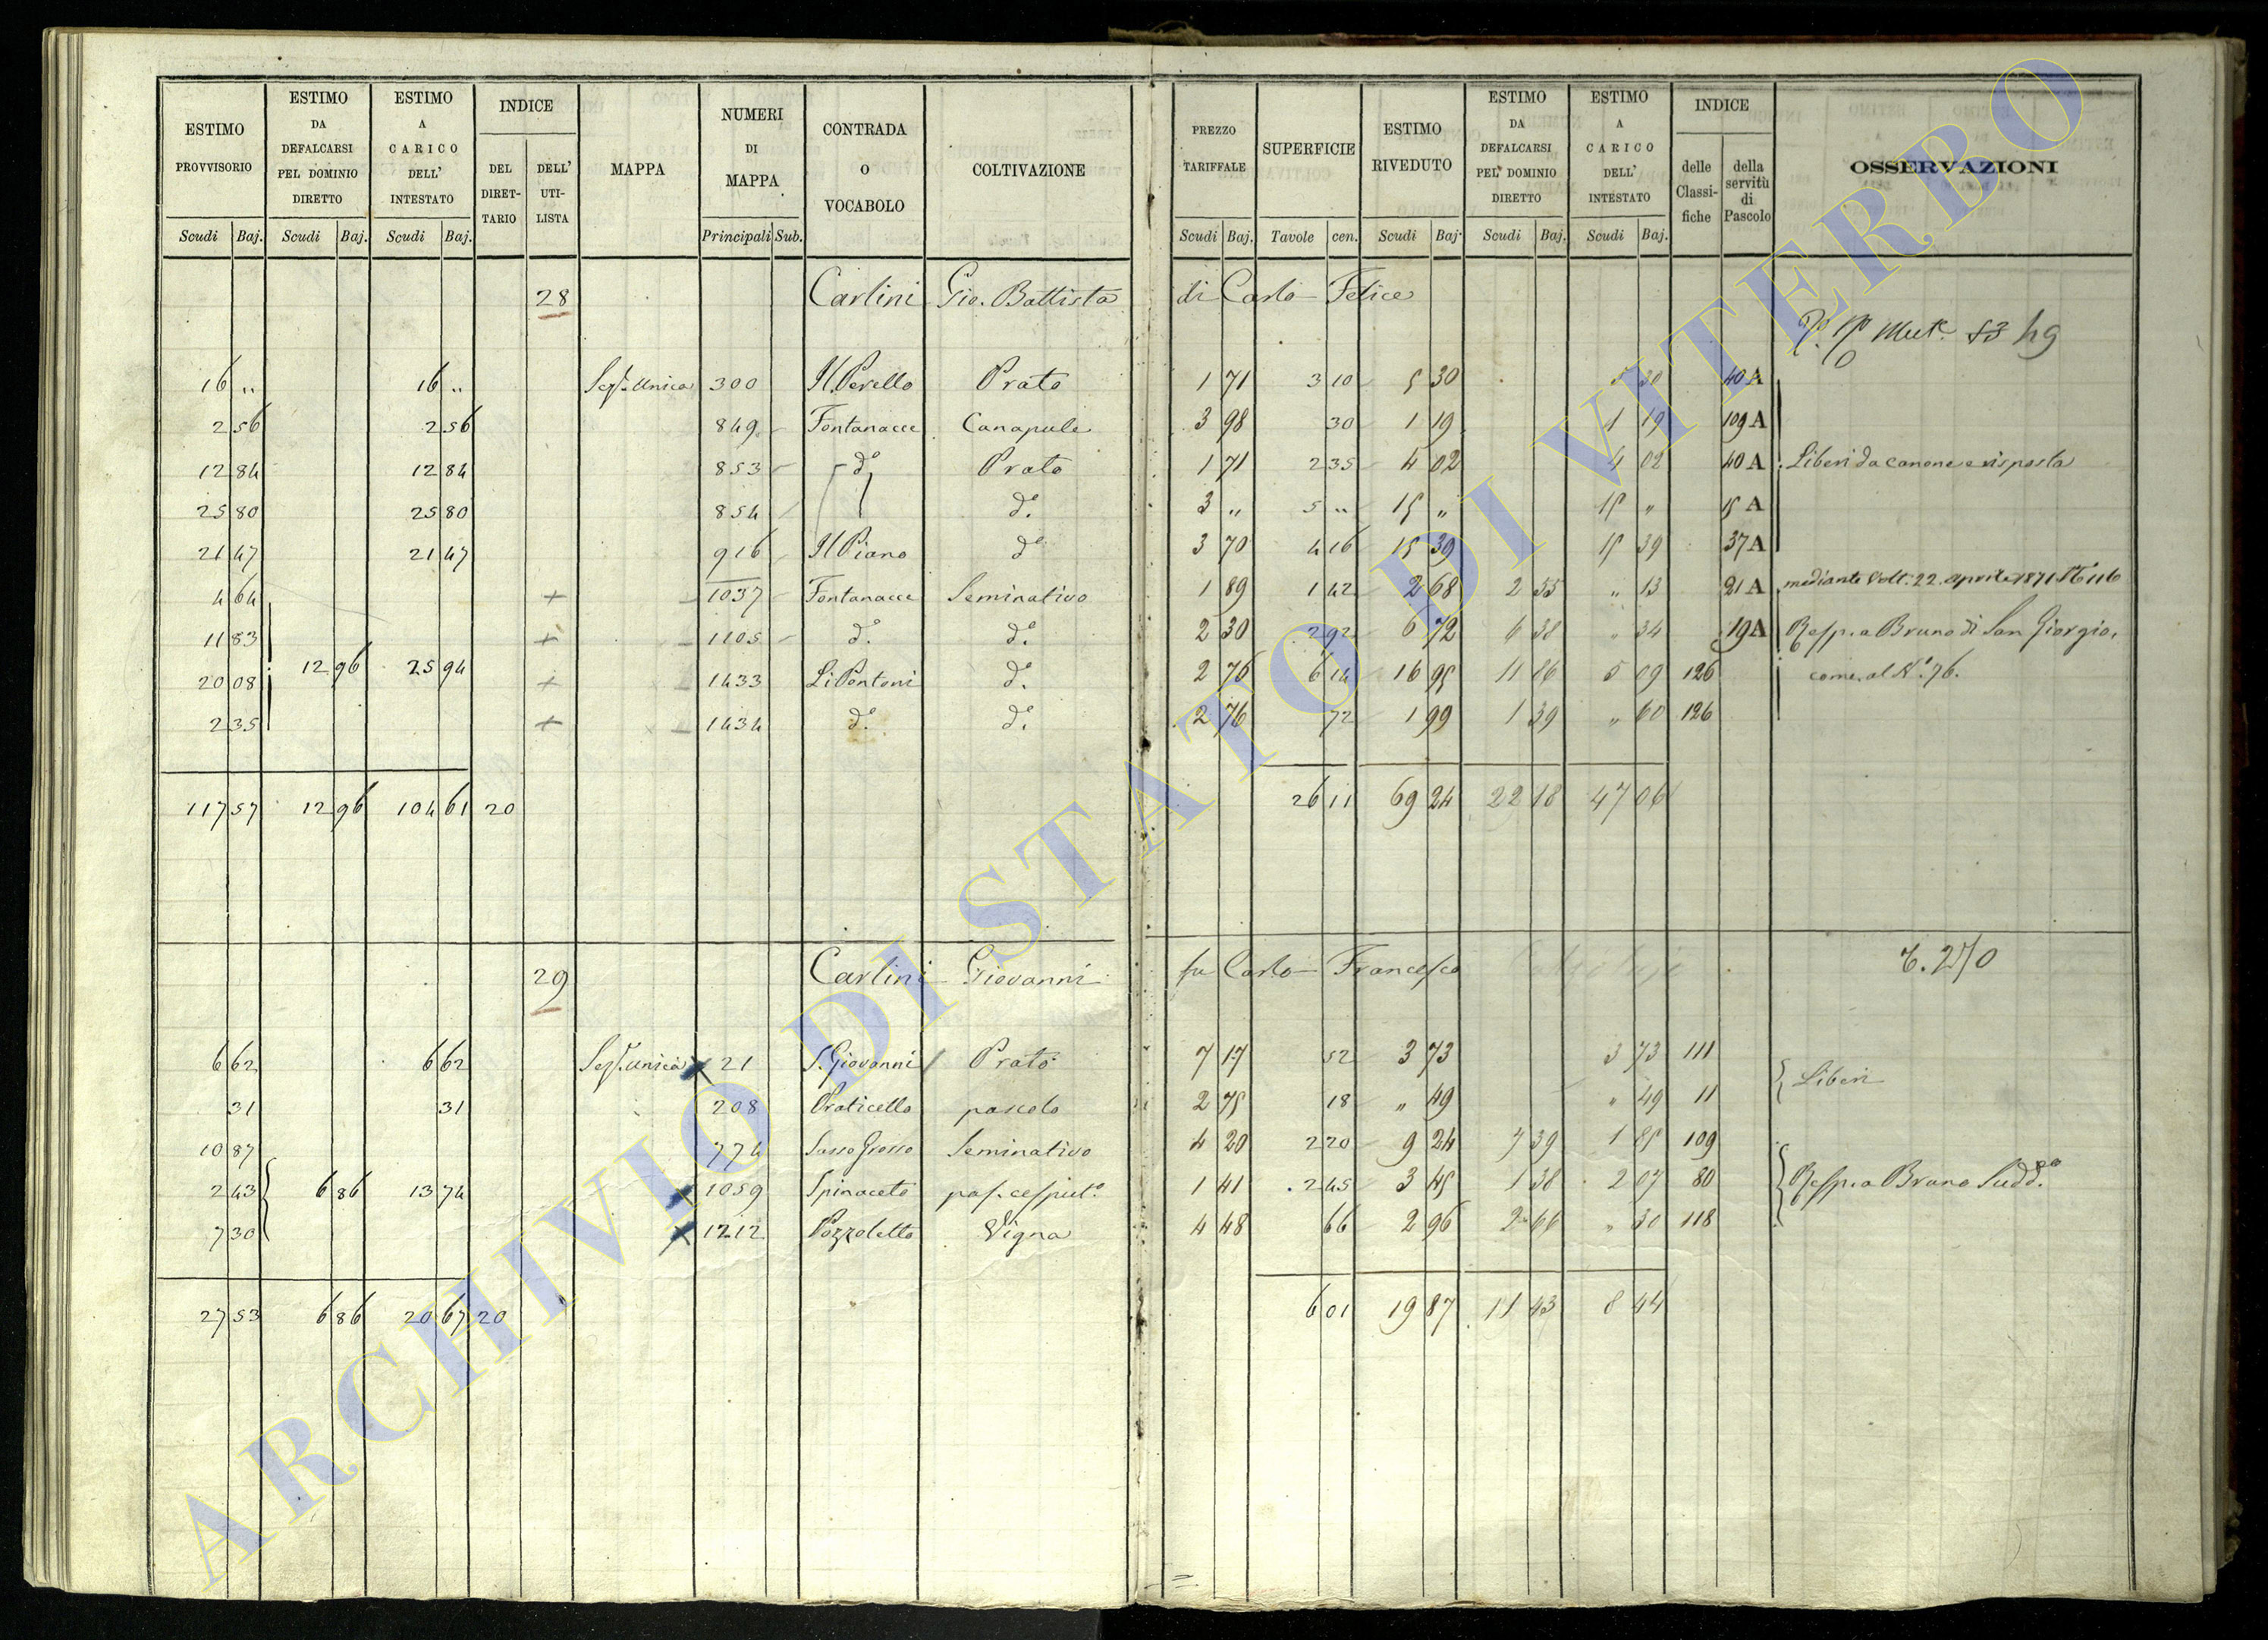 ESTIMO PROVVISORIO
ESTIMO DA DEFALCARSI PEL DOMINIO DIRETTO
ESTIMO A CARICO DELL' INTESTATO
INDICE
DEL DIRET-TARIO
DELL' UTI-LISTA
MAPPA
NUMERI DI MAPPA
CONTRADA O VOCABOLO
COLTIVAZIONE
PREZZO TARIFFALE
SUPERFICIE
ESTIMO RIVEDUTO
ESTIMO DA DEFALCARSI PEL DOMINIO DIRETTO
ESTIMO A CARICO DELL' INTESTATO
INDICE
delle Classi-fiche
della servitù di Pascolo
OSSERVAZIONI
Scudi Baj. Scudi Baj. Scudi Baj. Principali Sub. Scudi Baj. Tavole cen. Scudi Baj. Scudi Baj. Scudi Baj.
28 Carlini Gio. Battista di Carlo Felice
16 " 16 " Sez. Unica 300 Il Perello Prato 1 71 3 10 5 30 5 30 40 A
2 56 2 56 849 Fontanacce Canapule 3 98 30 1 19 1 19 109 A
12 84 12 84 853 d.° Prato 1 71 2 35 4 02 4 02 40 A Liberi da canone e risposta
25 80 25 80 854 d.° 3 " 5 " 15 " 15 " 15 A
21 47 21 47 916 Il Piano d.° 3 70 4 16 15 39 15 39 37 A
4 64 + 1037 Fontanacce Seminativo 1 89 1 42 2 68 2 55 " 13 21 A mediante Volt. 22 aprile 1871 N° 116
11 83 + 1105 d.° d.° 2 30 2 92 6 72 6 38 " 34 19 A Resp. a Bruno di San Giorgio,
20 08 12 96 25 94 + 1433 Li Pontoni d.° 2 76 6 14 16 95 11 86 5 09 126 come al N.° 76.
2 35 + 1434 d.° d.° 2 76 72 1 99 1 39 " 60 126
117 57 12 96 104 61 20 26 11 69 24 22 18 47 06
29 Carlini Giovanni fu Carlo Francesco
6 62 6 62 Sez. Unica 21 S. Giovanni Prato 7 17 52 3 73 3 73 111
31 31 208 Praticello pascolo 2 75 18 " 49 " 49 11 Liberi
10 87 774 Sasso Grosso Seminativo 4 20 2 20 9 24 7 39 1 85 109
2 43 6 86 13 74 1059 Spinaceto pas. cespit.° 1 41 2 45 3 45 1 38 2 07 80 Resp. a Bruno Sudd.°
7 30 1212 Pozzoletto Vigna 4 48 66 2 96 2 66 " 30 118
27 53 6 86 20 67 20 6 01 19 87 11 43 8 44
ARCHIVIO DI STATO DI VITERBO